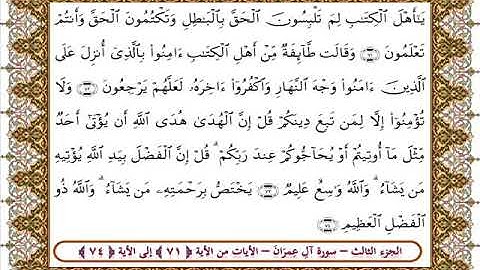 يَـٰٓأَهْلَ ٱلْكِتَـٰبِ لِمَ تَلْبِسُونَ ٱلْحَقَّ بِٱلْبَـٰطِلِ وَتَكْتُمُونَ ٱلْحَقَّ وَأَنتُمْ
تَعْلَمُونَ ﴿٧١﴾ وَقَالَت طَّآئِفَةٌ مِّنْ أَهْلِ ٱلْكِتَـٰبِ ءَامِنُوا۟ بِٱلَّذِىٓ أُنزِلَ عَلَى
ٱلَّذِينَ ءَامَنُوا۟ وَجْهَ ٱلنَّهَارِ وَٱكْفُرُوٓا۟ ءَاخِرَهُۥ لَعَلَّهُمْ يَرْجِعُونَ ﴿٧٢﴾ وَلَا
تُؤْمِنُوٓا۟ إِلَّا لِمَن تَبِعَ دِينَكُمْ قُلْ إِنَّ ٱلْهُدَىٰ هُدَى ٱللَّهِ أَن يُؤْتَىٰٓ أَحَدٌ
مِّثْلَ مَآ أُوتِيتُمْ أَوْ يُحَآجُّوكُمْ عِندَ رَبِّكُمْ ۗ قُلْ إِنَّ ٱلْفَضْلَ بِيَدِ ٱللَّهِ يُؤْتِيهِ
مَن يَشَآءُ ۗ وَٱللَّهُ وَٰسِعٌ عَلِيمٌ ﴿٧٣﴾ يَخْتَصُّ بِرَحْمَتِهِۦ مَن يَشَآءُ ۗ وَٱللَّهُ ذُو
ٱلْفَضْلِ ٱلْعَظِيمِ ﴿٧٤﴾
الجزء الثالث – سورة آلِ عِمرَانَ – الآيات من الآية ﴿٧١﴾ إلى الآية ﴿٧٤﴾